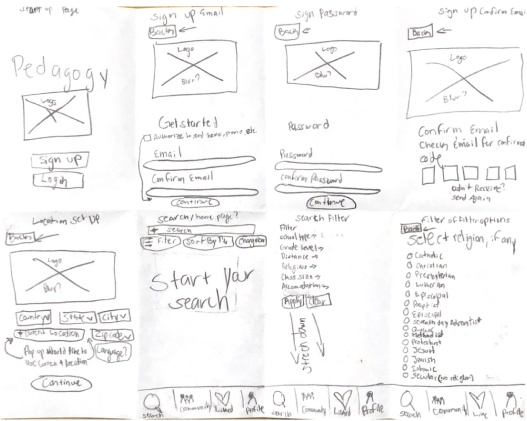 Start up page
Pedagogy
Logo
Sign up
Login
Sign up Email
Back
Logo
Blur?
Get started
Email
Confirm Email
Continue
Sign Password
Back
Logo
Blur?
Password
Password
Confirm Password
Continue
Sign up Confirm Email
Back
Logo
Blur?
Confirm Email
Check Email for
code
Didn't Receive?
Send Again
Location Set UP
Back
Logo
Blur?
Country
State
City
Current Location
Zipcode
Pop up would like to
use current location
Language?
Continue
search/home page?
search
Filter
Sort By
Start your
search!
search
Community
Liked
Profile
Search Filter
Filter
Grade level
Distance
Religion
Class size
Apply
Clear
down
search
Community
Liked
Profile
Filter of filter options
Back
select religion, if any
Catholic
Christian
Presbyterian
Lutheran
Episcopal
Baptist
Episcopal
Seventh day Adventist
Protestant
Jesuit
Jewish
Islamic
Secular (no religion)
search
Community
Like
Profile